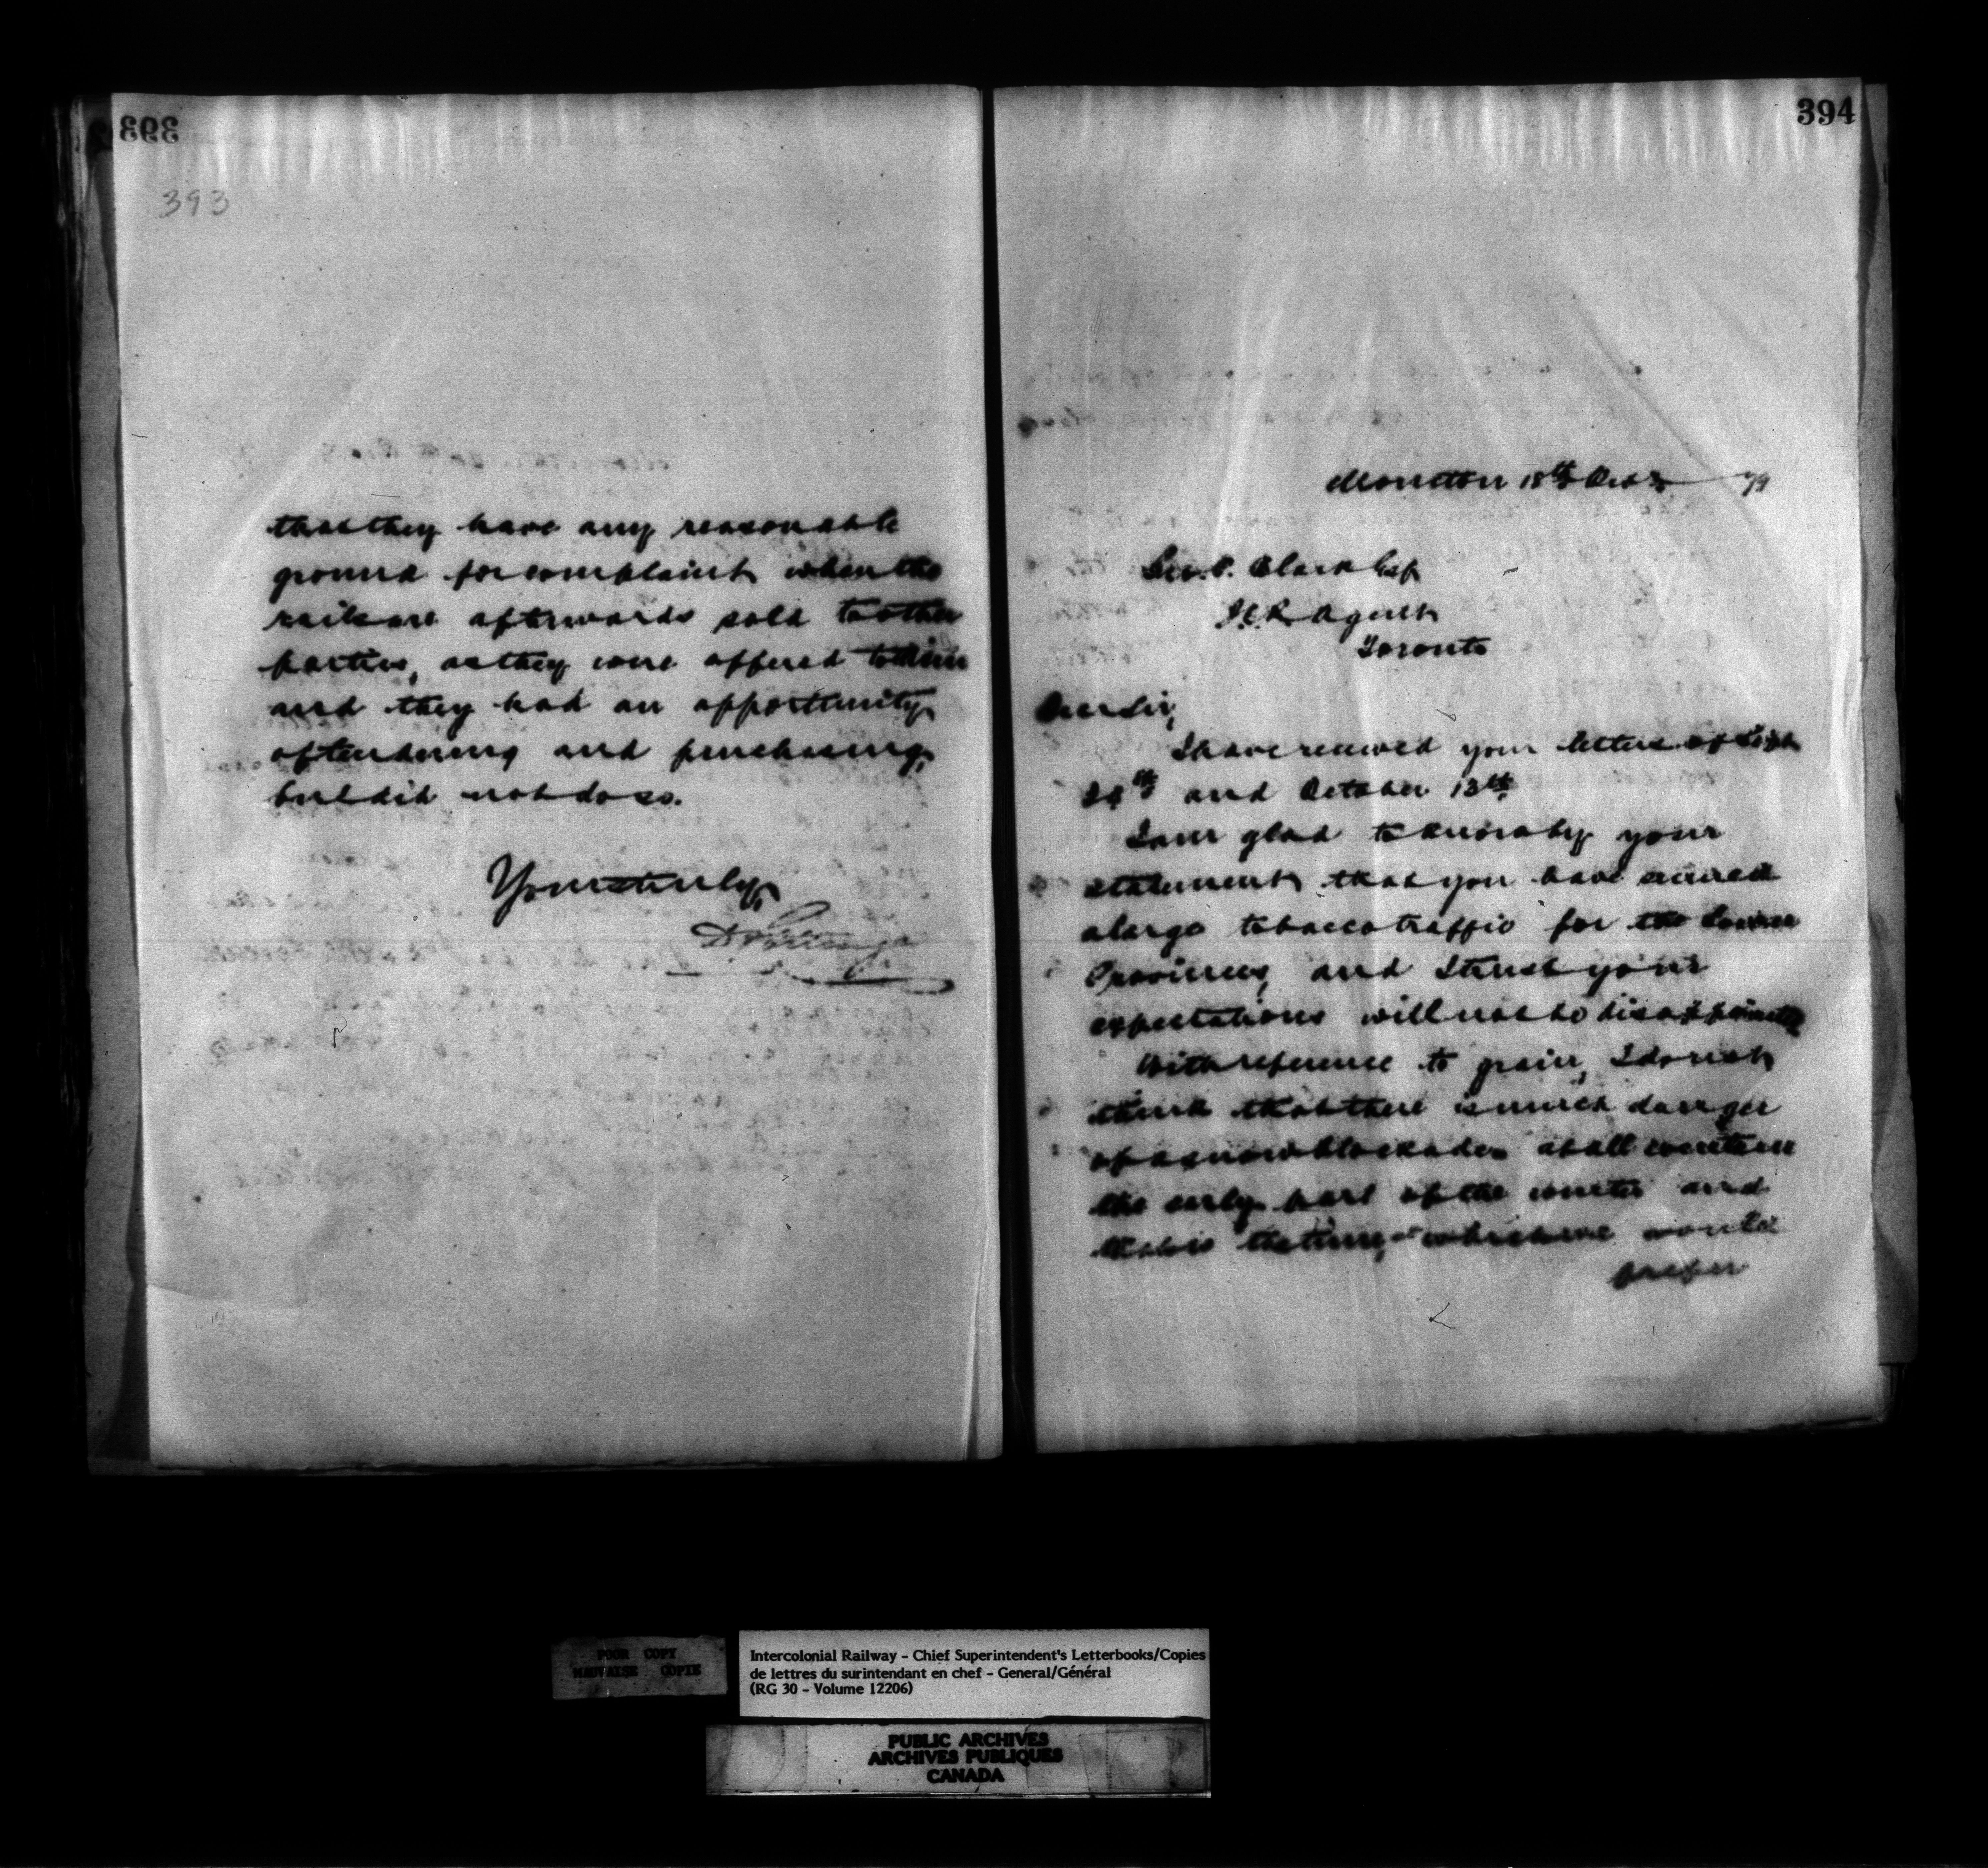 393
393
that they have any reasonable
ground for complaint when the
rails are afterwards sold to other
parties, as they were offered to them
and they had an opportunity
of tendering and purchasing,
but did not do so.
Yours truly,
D Pottinger
394
Moncton 18th Oct 79
Geo. P. Clark Esq
I.C.R. Agent
Toronto
Dear Sir,
I have received your letters of Sept
24th and October 13th.
I am glad to know by your
statement that you have secured
a large tobacco traffic for the Lower
Provinces, and I trust your
expectations will not be disappointed
With reference to grain, I do not
think that there is much danger
of a snow blockade at all events in
the early part of the winter and
that is the time at which we would
prefer
POOR COPY
MAUVAISE COPIE
Intercolonial Railway - Chief Superintendent's Letterbooks/Copies
de lettres du surintendant en chef - General/Général
(RG 30 - Volume 12206)
PUBLIC ARCHIVES
ARCHIVES PUBLIQUES
CANADA